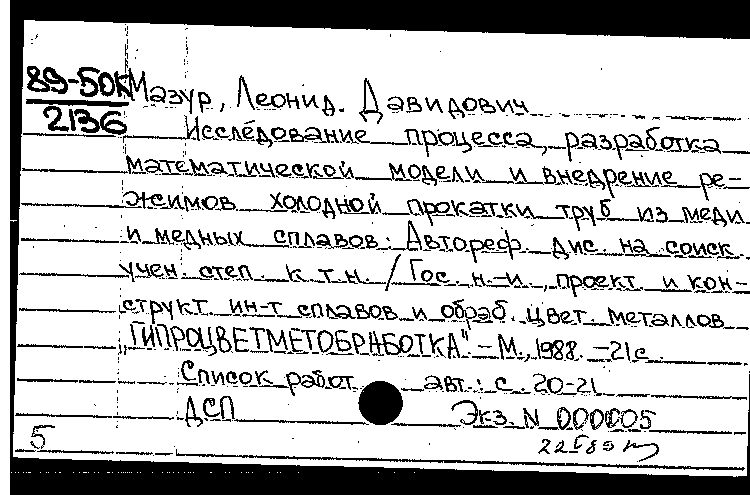 89-50К
2136
Мазур, Леонид Давидович
Исследование процесса, разработка
математической модели и внедрение ре-
жимов холодной прокатки труб из меди
и медных сплавов: Автореф. дис. на соиск.
учен. степ. к.т.н. / Гос. н.-и., проект. и кон-
структ. ин-т сплавов и обраб. цвет. металлов
„ГИПРОЦВЕТМЕТОБРАБОТКА". - М., 1988. - 21 с.
Список работ авт.: с. 20-21
ДСП Экз. N 000005
5